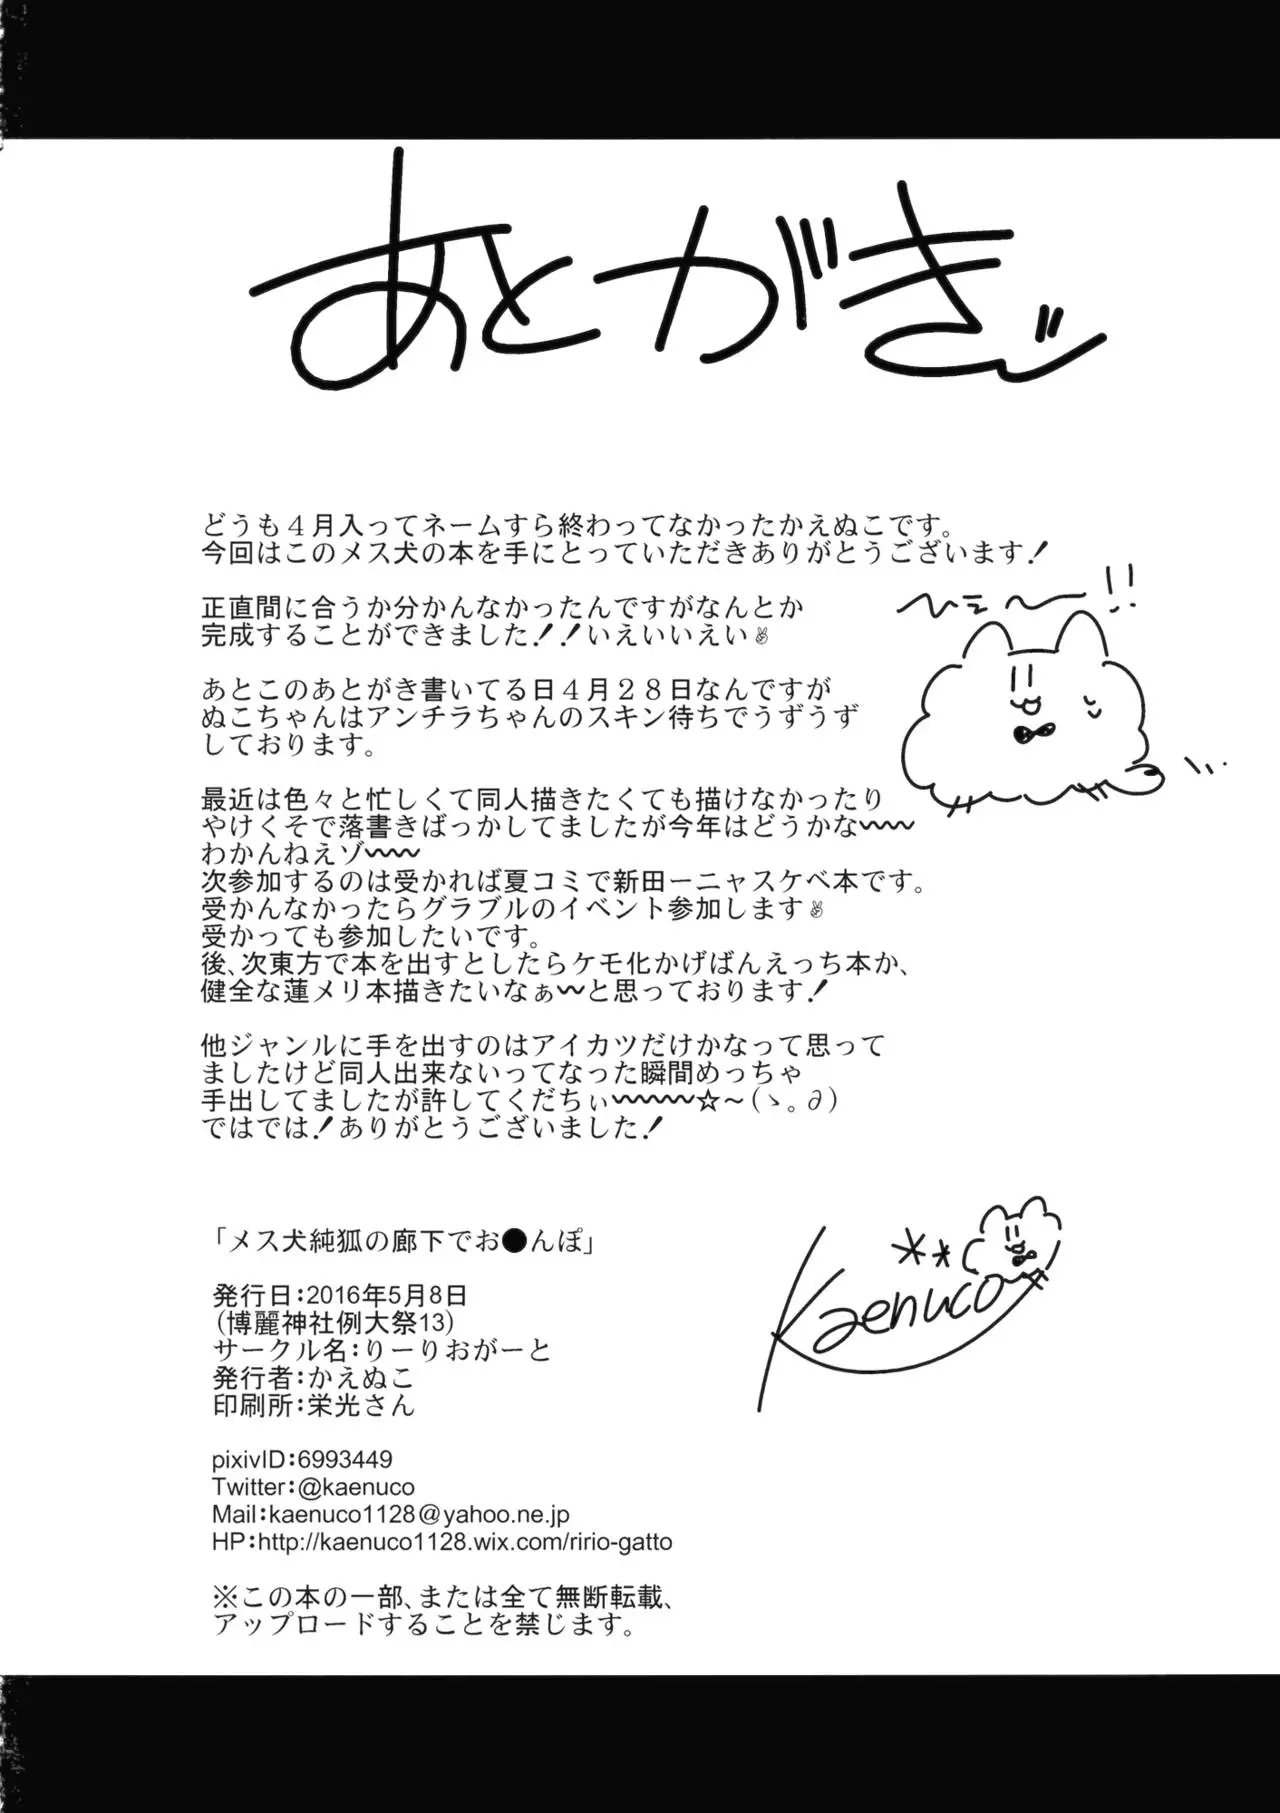 あとがきッ
どうも４月入ってネームすら終わってなかったかえぬこです。
今回はこのメス犬の本を手にとっていただきありがとうございます！
正直間に合うか分かんなかったんですがなんとか
完成することができました！！いえいいえい✌
あとこのあとがき書いてる日４月２８日なんですが
ぬこちゃんはアンチラちゃんのスキン待ちでうずうず
しております。
最近は色々と忙しくて同人描きたくても描けなかったり
やけくそで落書きばっかしてましたが今年はどうかな〰〰
わかんねえゾ〰〰
次参加するのは受かれば夏コミで新田ーニャスケベ本です。
受かんなかったらグラブルのイベント参加します✌
受かっても参加したいです。
後、次東方で本を出すとしたらケモ化かげばんえっち本か、
健全な蓮メリ本描きたいなぁ〰と思っております！
他ジャンルに手を出すのはアイカツだけかなって思って
ましたけど同人出来ないってなった瞬間めっちゃ
手出してましたが許してくだちぃ〰〰〰☆～(ゝ。∂)
ではでは！ありがとうございました！
ひえ〜!!
「メス犬純狐の廊下でお●んぽ」
発行日：2016年5月8日
（博麗神社例大祭13）
サークル名：りーりおがーと
発行者：かえぬこ
印刷所：栄光さん
Kaenuco
pixivID：6993449
Twitter：@kaenuco
Mail：kaenuco1128@yahoo.ne.jp
HP：http://kaenuco1128.wix.com/ririo-gatto
※この本の一部、または全て無断転載、
アップロードすることを禁じます。